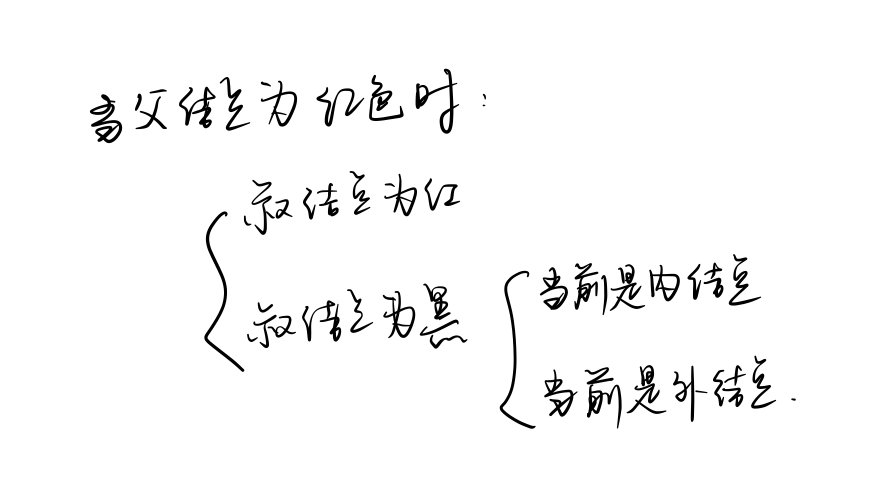 当父结点为红色时：
叔结点为红
叔结点为黑
当前是内结点
当前是外结点.